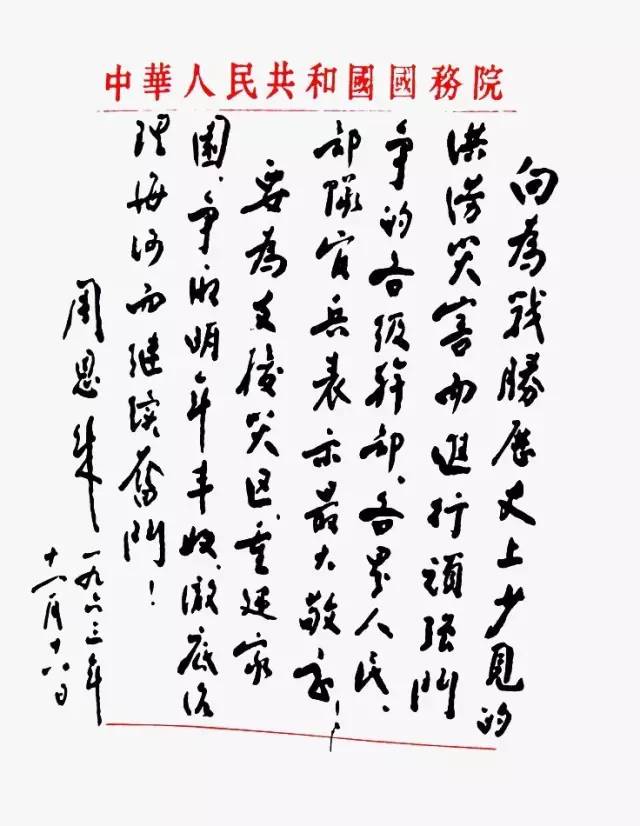 中華人民共和國國務院
向為戰勝歷史上少見的
洪澇災害而進行頑强鬥
争的各级幹部、各界人民、
部隊官兵表示最大敬意！
要為支援災区、重建家
園、争取明年丰收、澈底治
理海河而继续奮鬥！
周恩来
一九六三年
十一月十八日